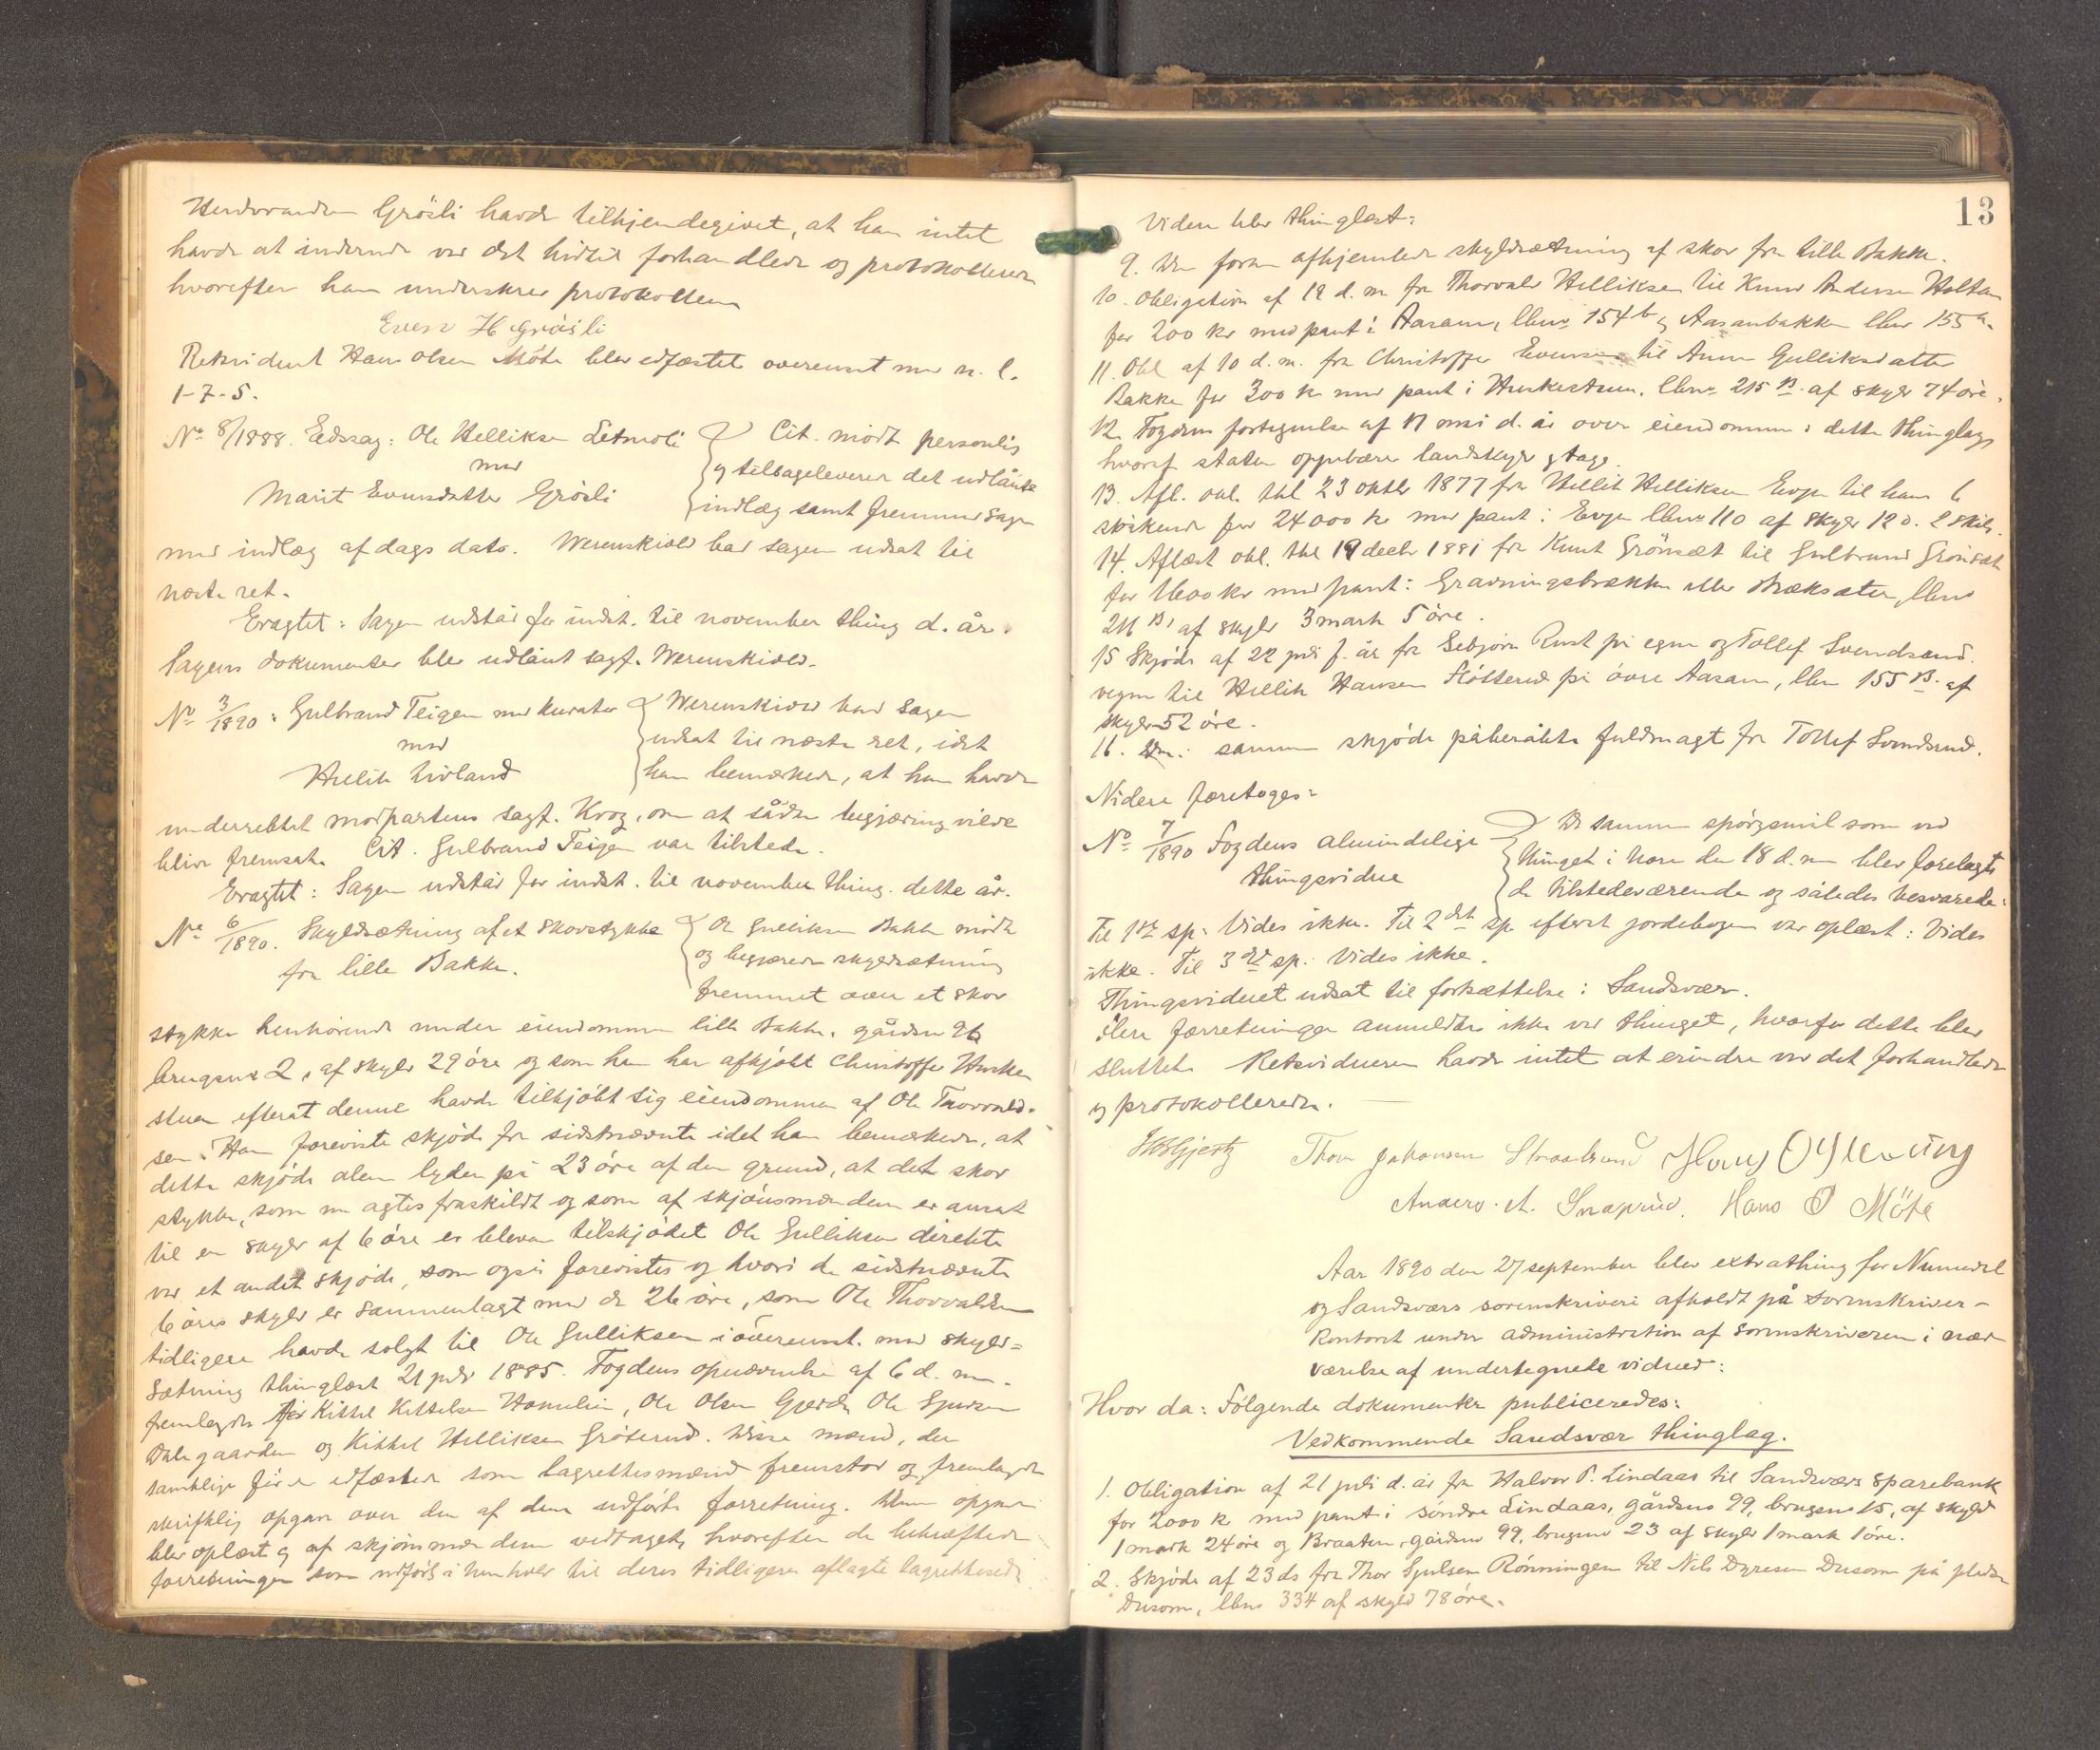 Grösli havde tilkjendegivet, at han intet
havde at indvende ved det hidtil forhandlede og protokollerede
hvorefter han underskrev protokollen
Even H Grösli
Retsvident Hans Olsen Möte blev edfæstet overensst med n. l.
1-7-5.
No 8/1888. Edssag: Ole Helliksen
mod
Marit Evensdatter Grösli
Cit. mödte personlig
og tilbageleverede det udlånte
indlæg samt fremmede sagen
med indlæg af dags dato. Werenskiold bad sagen udsat til
næste ret.
Eragtet: Sagen udstår for indst. til november thing d. år.
Sagens dokumenter blev udlånt sagf. Werenskiold.
No 3/1890: Gulbrand Teigen med kurator
mod
Hellik Livland
Werenskiold bad sagen
udsat til næste ret, idet
han bemærkede, at han havde
underrettet modpartens sagf. Krog, om at sådan begjæring vilde
blive fremsat. Cit. Gulbrand Teigen var tilstede.
Eragtet: Sagen udstår for indst. til november thing dette år.
No 6/1890. Skyldsætning af et skovstykke
fra lille Bakke.
Ole Gulliksen Bakke mödte
og begjærede skyldsætning
fremmet over et skov
stykke henhörende under eiendommen lille Bakke, gårdsno 26
brugsno 2, af skyld 29 öre og som han har afkjöbt Christoffer Huske
stuen efterat denne havde tilkjöbt sig eiendommen af Ole Thorvald-
sen. Han foreviste skjöde fra sidstnævnte idet han bemærkede, at
dette skjöde alene lyder på 23 öre af den grund, at det skov
stykke, som nu agtes fraskildt og som af skjönsmændene er ansat
til en skyld af 6 öre er bleven tilskjödet Ole Gulliksen direkte
ved et andet skjöde, som også forevistes og hvori de sidstnævnte
6 öres skyld er sammenlagt med de 26 öre, som Ole Thorvaldsen
tidligere havde solgt til Ole Gulliksen i överensst. med skyld-
sætning thinglæst 21 juli 1885. Fogdens opnævnelse af 6 d. m.
fremlagdes. Kittel Kittelsen, Ole Olsen Gjerde, Ole
Dalegaarden og Kittel Helliksen Gröterud. Disse mænd, der
samtlige för er edfæstede som lagrettesmænd fremstod og fremlagde
skriftlig opgave over den af dem udförte forretning. Denne opgave
blev oplæst og af skjönsmændene vedtaget, hvorefter de bekræftede
forretningen som udfört i henhold til deres tidligere aflagte lagrettesed.
13
Videre blev thinglæst:
9. Den foran afhjemlede skyldsætning af skov fra lille Bakke.
10. Obligation af 12 d. m. fra Thorvald Helliksen til Knud Andersen Holtan
for 200 kr med pant i Aasann, lbno 154 b og Aasanbakken lbno 155 a.
11. Obl af 10 d. m. fra Christoffer Evensen til Anne Gulliksdatter
Bakke for 300 kr med pant i Huskestuen, lbno 215 B. af skyld 74 öre.
12. Fogdens fortegnelse af 17 mai d. år over eiendomme i dette thinglag
hvoraf staten oppebærer landskyld og tage.
13. Afl. obl. thl 23 oktbr 1877 fra Hellik Helliksen Evju til hans 6
söskende for 24000 kr med pant i Evju lbno 110 af skyld 12 d. 2 skill.
14. Aflæst obl. thl 19 decbr 1881 fra Knut Grönsæt til Gulbrand Grönsæt
for 1600 kr med pant i Gravningsbrækken eller Bræksæter, lbno
211 B, af skyld 3 mark 5 öre.
15 Skjöde af 22 juli f. år fra Sebjörn Rust på egne og Tollef Svendsrud.
vegne til Hellik Hansen Slötterud på övre Aasann, lbno 155 B. af
skyld 52 öre.
16. Den i samme skjöde påberåbte fuldmagt fra Tollef Svendsrud.
Videre foretoges:
No 7/1890 Fogdens almindelige
thingsvidne
De samme spörgsmål som ved
thinget i Nore den 18 d. m blev forelagt
de tilstedeværende og således besvarede:
Til 1ste sp: Vides ikke. Til 2det sp. efterat jordebogen var oplæst: Vides
ikke. Til 3die sp. Vides ikke.
Thingsvidnet udsat til fortsættelse i Sandsvær.
Flere forretninger anmeldtes ikke ved thinget, hvorfor dette blev
sluttet. Retsvidnerne havde intet at erindre ved det forhandlede
og protokollerede.
Thor Johansen Hans
Anders. A. Snaprud. Hans O Möte
Aar 1890 den 27 september blev extrathing for Numedal
og Sandsværs sorenskriveri afholdt på sorenskriver-
kontoret under administration af sorenskriveren i nær
værelse af undertegnede vidner:
Hvor da: Fölgende dokumenter publiceredes:
Vedkommende Sandsvær thinglag.
1. Obligation af 21 juli d. år fra Halvor P. Lindaas til Sandsværs Sparebank
for 2000 kr med pant i söndre Lindaas, gårdsno 99, brugsno 15, af skyld
1 mark 24 öre og Braaten, gårdsno 99, brugsno 23 af skyld 1 mark 1 öre.
2. Skjöde af 23 ds fra Thor Gjulsen Rönningen til Nils Dyresen Dusom på pladsen
Dusom, lbno 334 af skyld 78 öre.